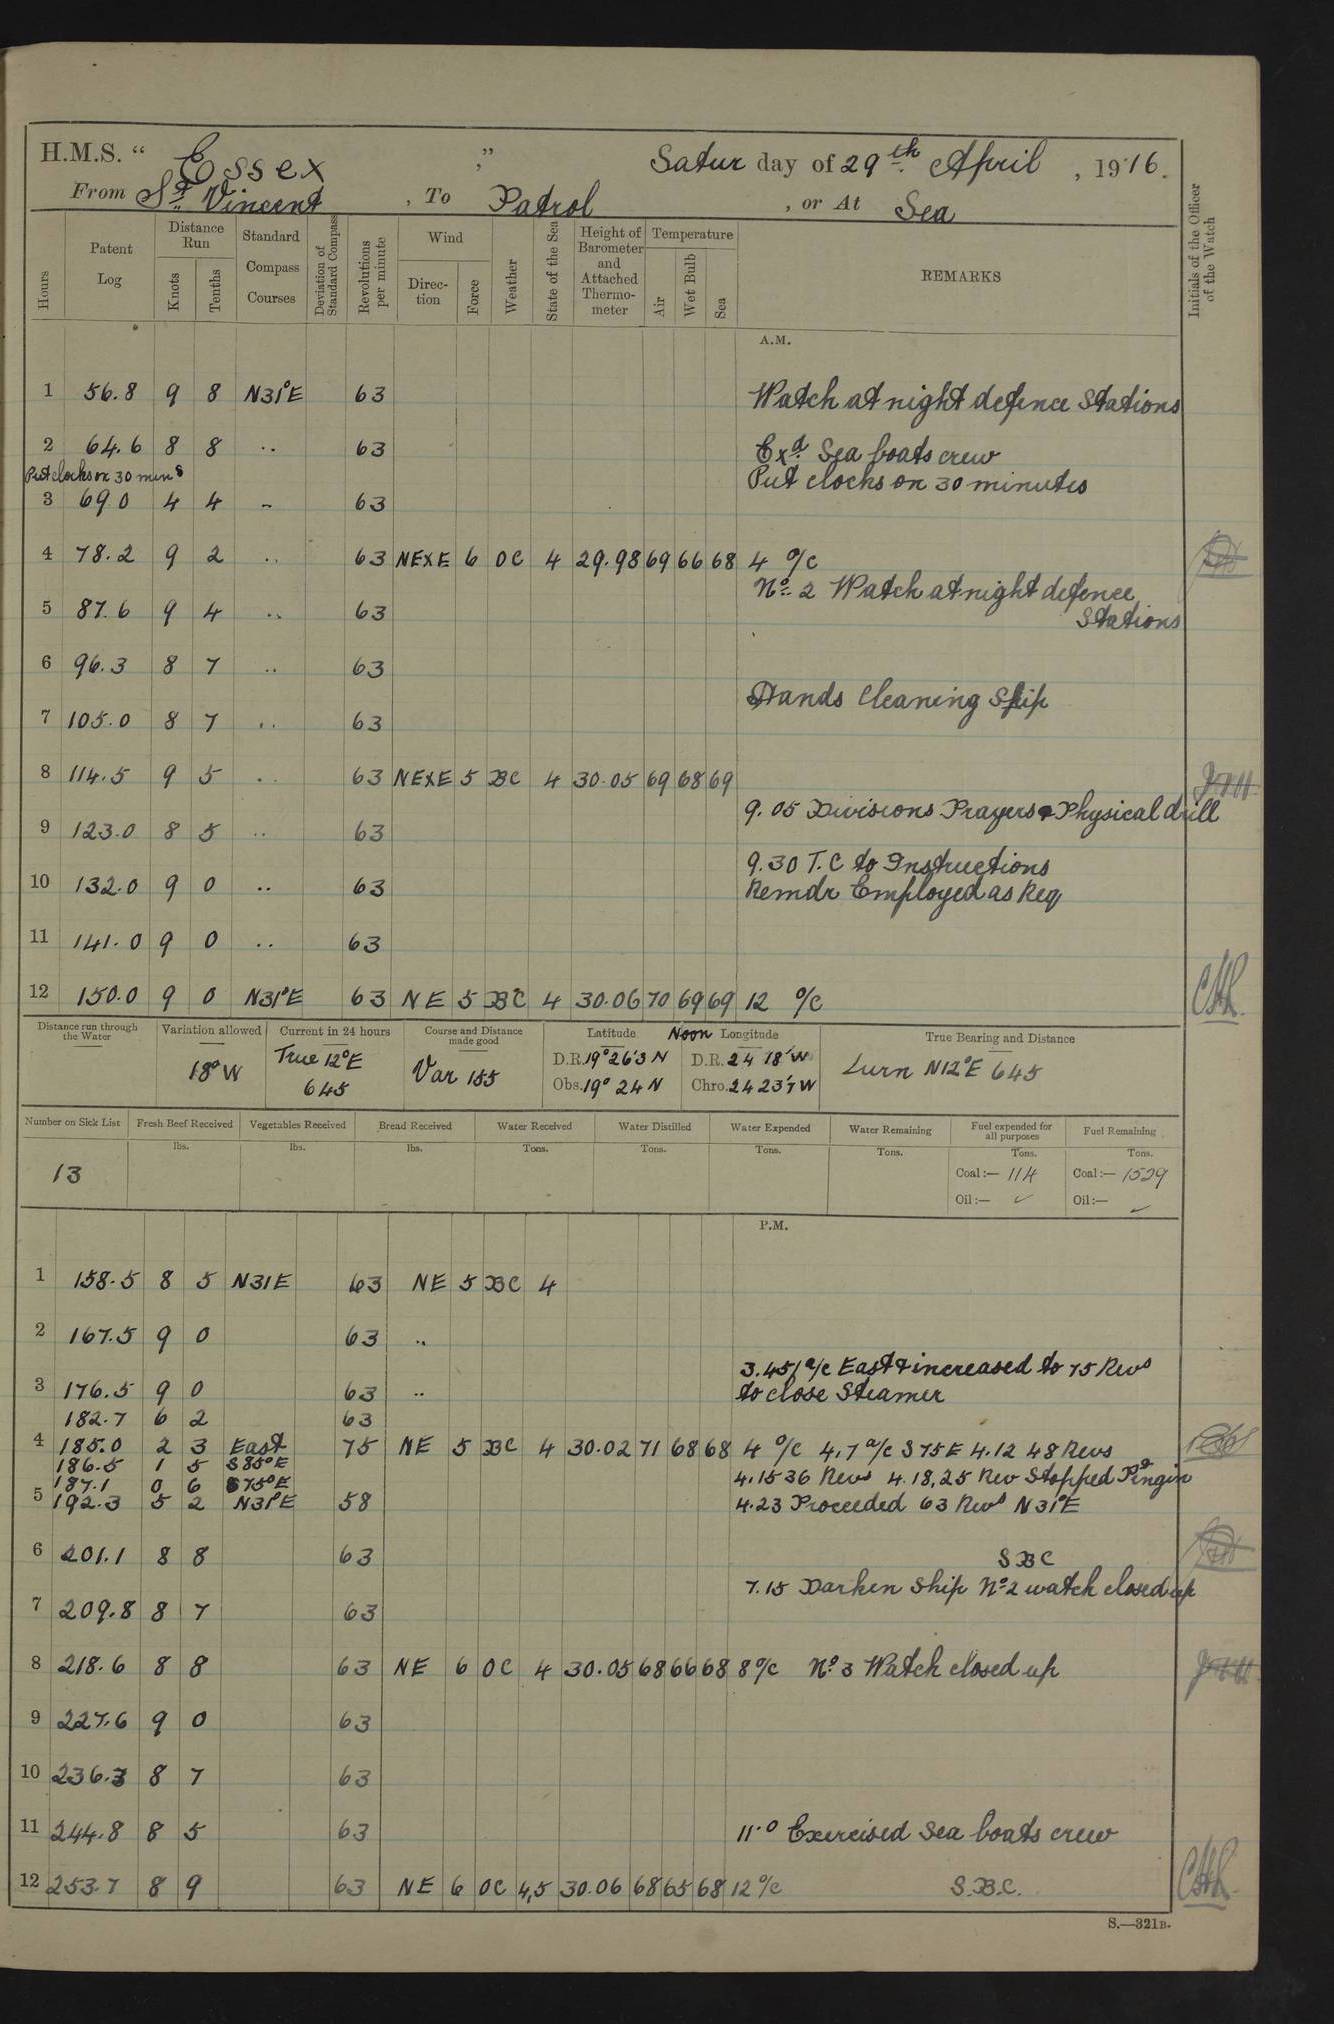 H.M.S. " Essex ," Satur day of 29th April , 1916.
From St. Vincent , To Patrol , or At Sea
Hours
Patent Log
Distance Run
Knots
Tenths
Standard Compass Courses
Deviation of Standard Compass
Revolutions per minute
Wind
Direction
Force
Weather
State of the Sea
Height of Barometer and Attached Thermometer
Temperature
Air
Wet Bulb
Sea
REMARKS
Initials of the Officer of the Watch
A.M.
1 56.8 9 8 N31°E 63 Watch at night defence Stations
2 64.6 8 8 .. 63 Exd. Sea boats crew
Put clocks on 30 mins Put clocks on 30 minutes
3 69.0 4 4 .. 63
4 78.2 9 2 .. 63 NEXE 6 OC 4 29.98 69 66 68 4 o/c
No. 2 Watch at night defence
5 87.6 9 4 .. 63 Stations
6 96.3 8 7 .. 63
Hands Cleaning Ship
7 105.0 8 7 .. 63
8 114.5 9 5 .. 63 NEXE 5 BC 4 30.05 69 68 69
9.05 Divisions Prayers & Physical drill
9 123.0 8 5 .. 63
9.30 T.C to Instructions
10 132.0 9 0 .. 63 Remdr Employed as Req
11 141.0 9 0 .. 63
12 150.0 9 0 N31°E 63 NE 5 BC 4 30.06 70 69 69 12 o/c
Distance run through the Water
Variation allowed
18°W
Current in 24 hours
True 12°E
645
Course and Distance made good
Var 155
Latitude Noon Longitude
D.R. 19° 26'3 N D.R. 24 18' W
Obs. 19° 24 N Chro. 24 23'7 W
True Bearing and Distance
Lurn N12°E 645
Number on Sick List Fresh Beef Received Vegetables Received Bread Received Water Received Water Distilled Water Expended Water Remaining Fuel expended for all purposes Fuel Remaining
lbs. lbs. lbs. Tons. Tons. Tons. Tons. Tons. Tons.
13 Coal:— 114 Coal:— 1529
Oil:— ✓ Oil:— ✓
P.M.
1 158.5 8 5 N31E 63 NE 5 BC 4
2 167.5 9 0 63 ..
3.45 a/c East & increased to 75 Revs
3 176.5 9 0 63 .. to close Steamer
182.7 6 2 63
4 185.0 2 3 East 75 NE 5 BC 4 30.02 71 68 68 4 o/c 4.7 a/c S75E 4.12 48 Revs
186.5 1 5 S85°E
187.1 0 6 S75°E 4.15 36 Revs 4.18,25 Rev Stopped Pingin
5 192.3 5 2 N31°E 58 4.23 Proceeded 63 Revs N31°E
6 201.1 8 8 63 SBC
7.15 Darken Ship No. 2 watch closed up
7 209.8 8 7 63
8 218.6 8 8 63 NE 6 OC 4 30.05 68 66 68 8 o/c No. 3 Watch closed up
9 227.6 9 0 63
10 236.3 8 7 63
11 244.8 8 5 63 11.0 Exercised Sea boats crew
12 253.7 8 9 63 NE 6 OC 4,5 30.06 68 65 68 12 o/c S.B.C.
S.—321B.